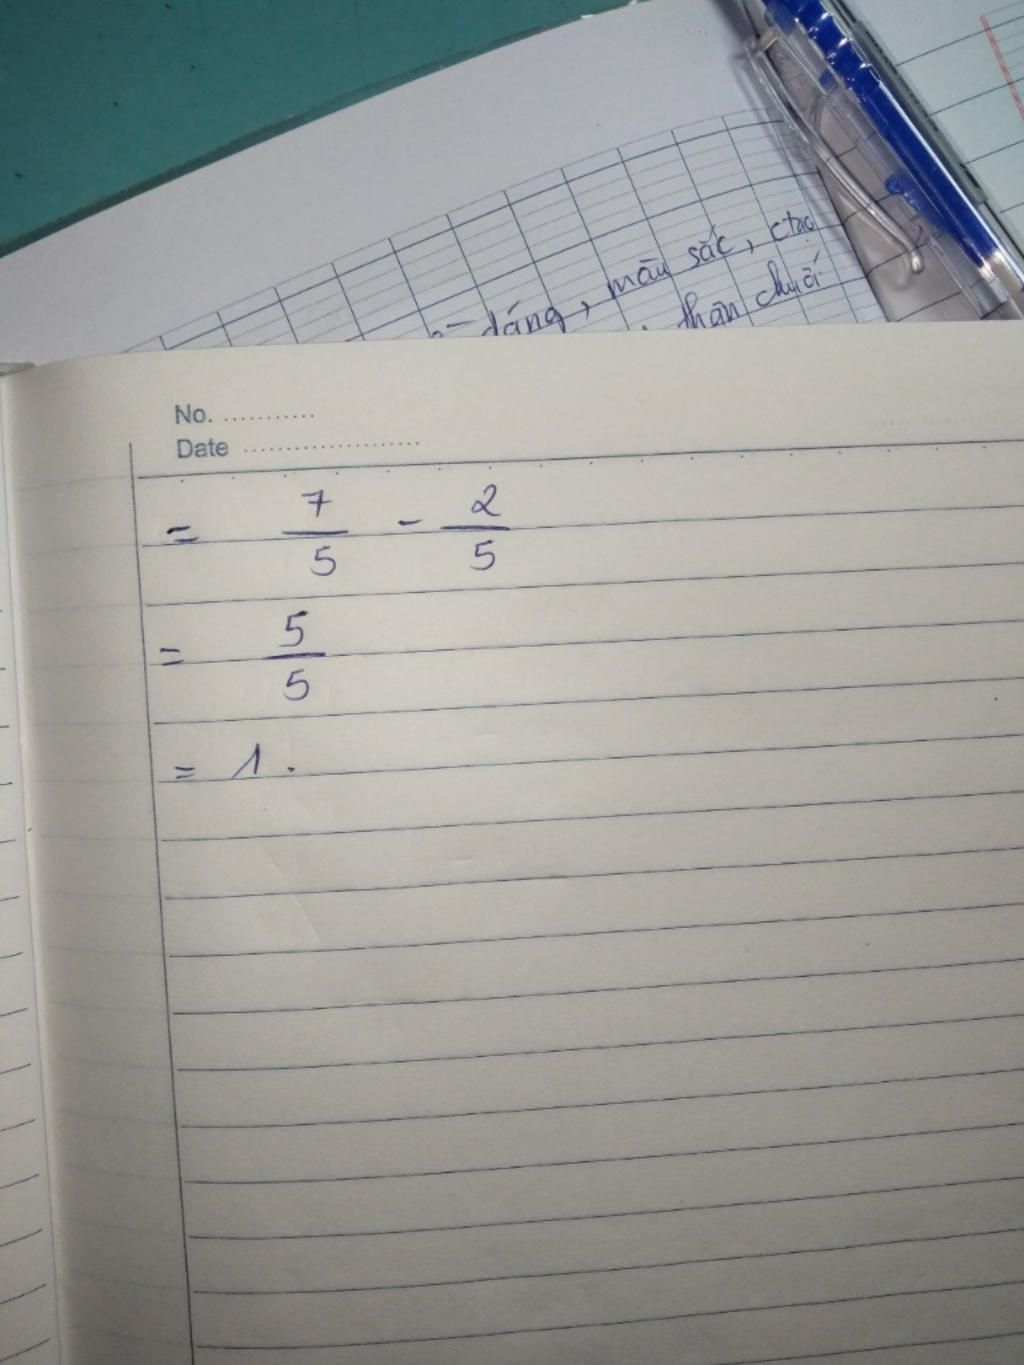 dáng, màu sắc, ctạo
thân chuối
No. ...........
Date .....................
= 7/5 - 2/5
= 5/5
= 1.